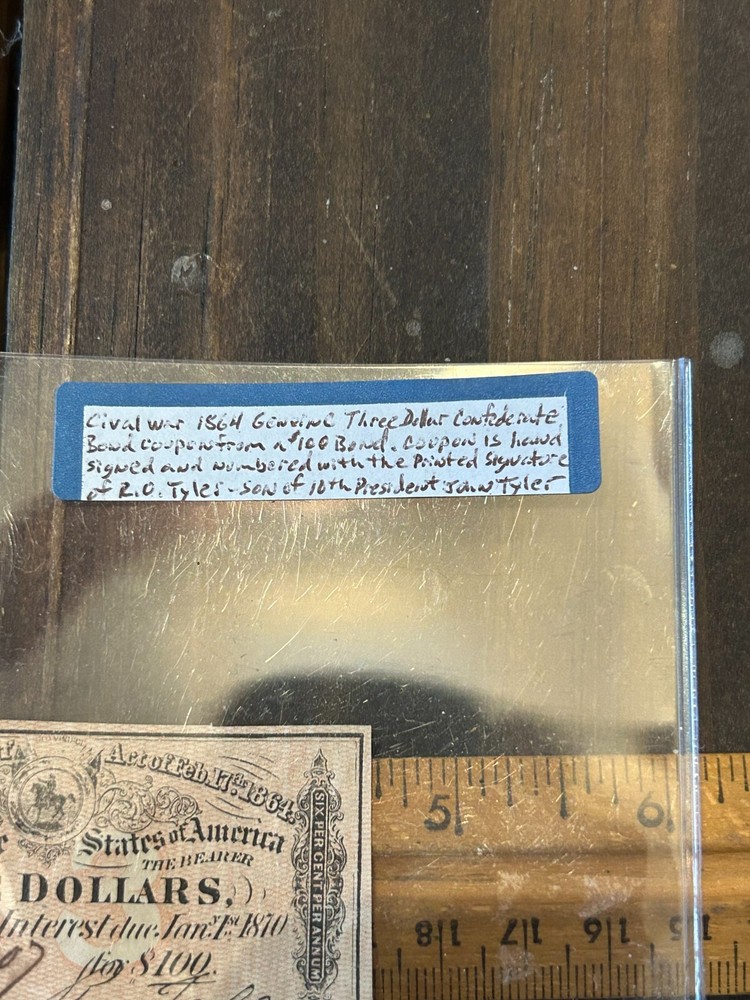 Cival war 1864 Genuine Three Dollar Confederate
Bond coupon from a $100 Bond. Coupon is hand
signed and numbered with the Printed Signature
of R.O. Tyler - Son of 10th President John Tyler
Act of Feb. 17th 1864.
States of America
THE BEARER
DOLLARS,
Interest due Jany 1st 1870
for $100.
SIX PER CENT PER ANNUM
5 6
18 17 16 15